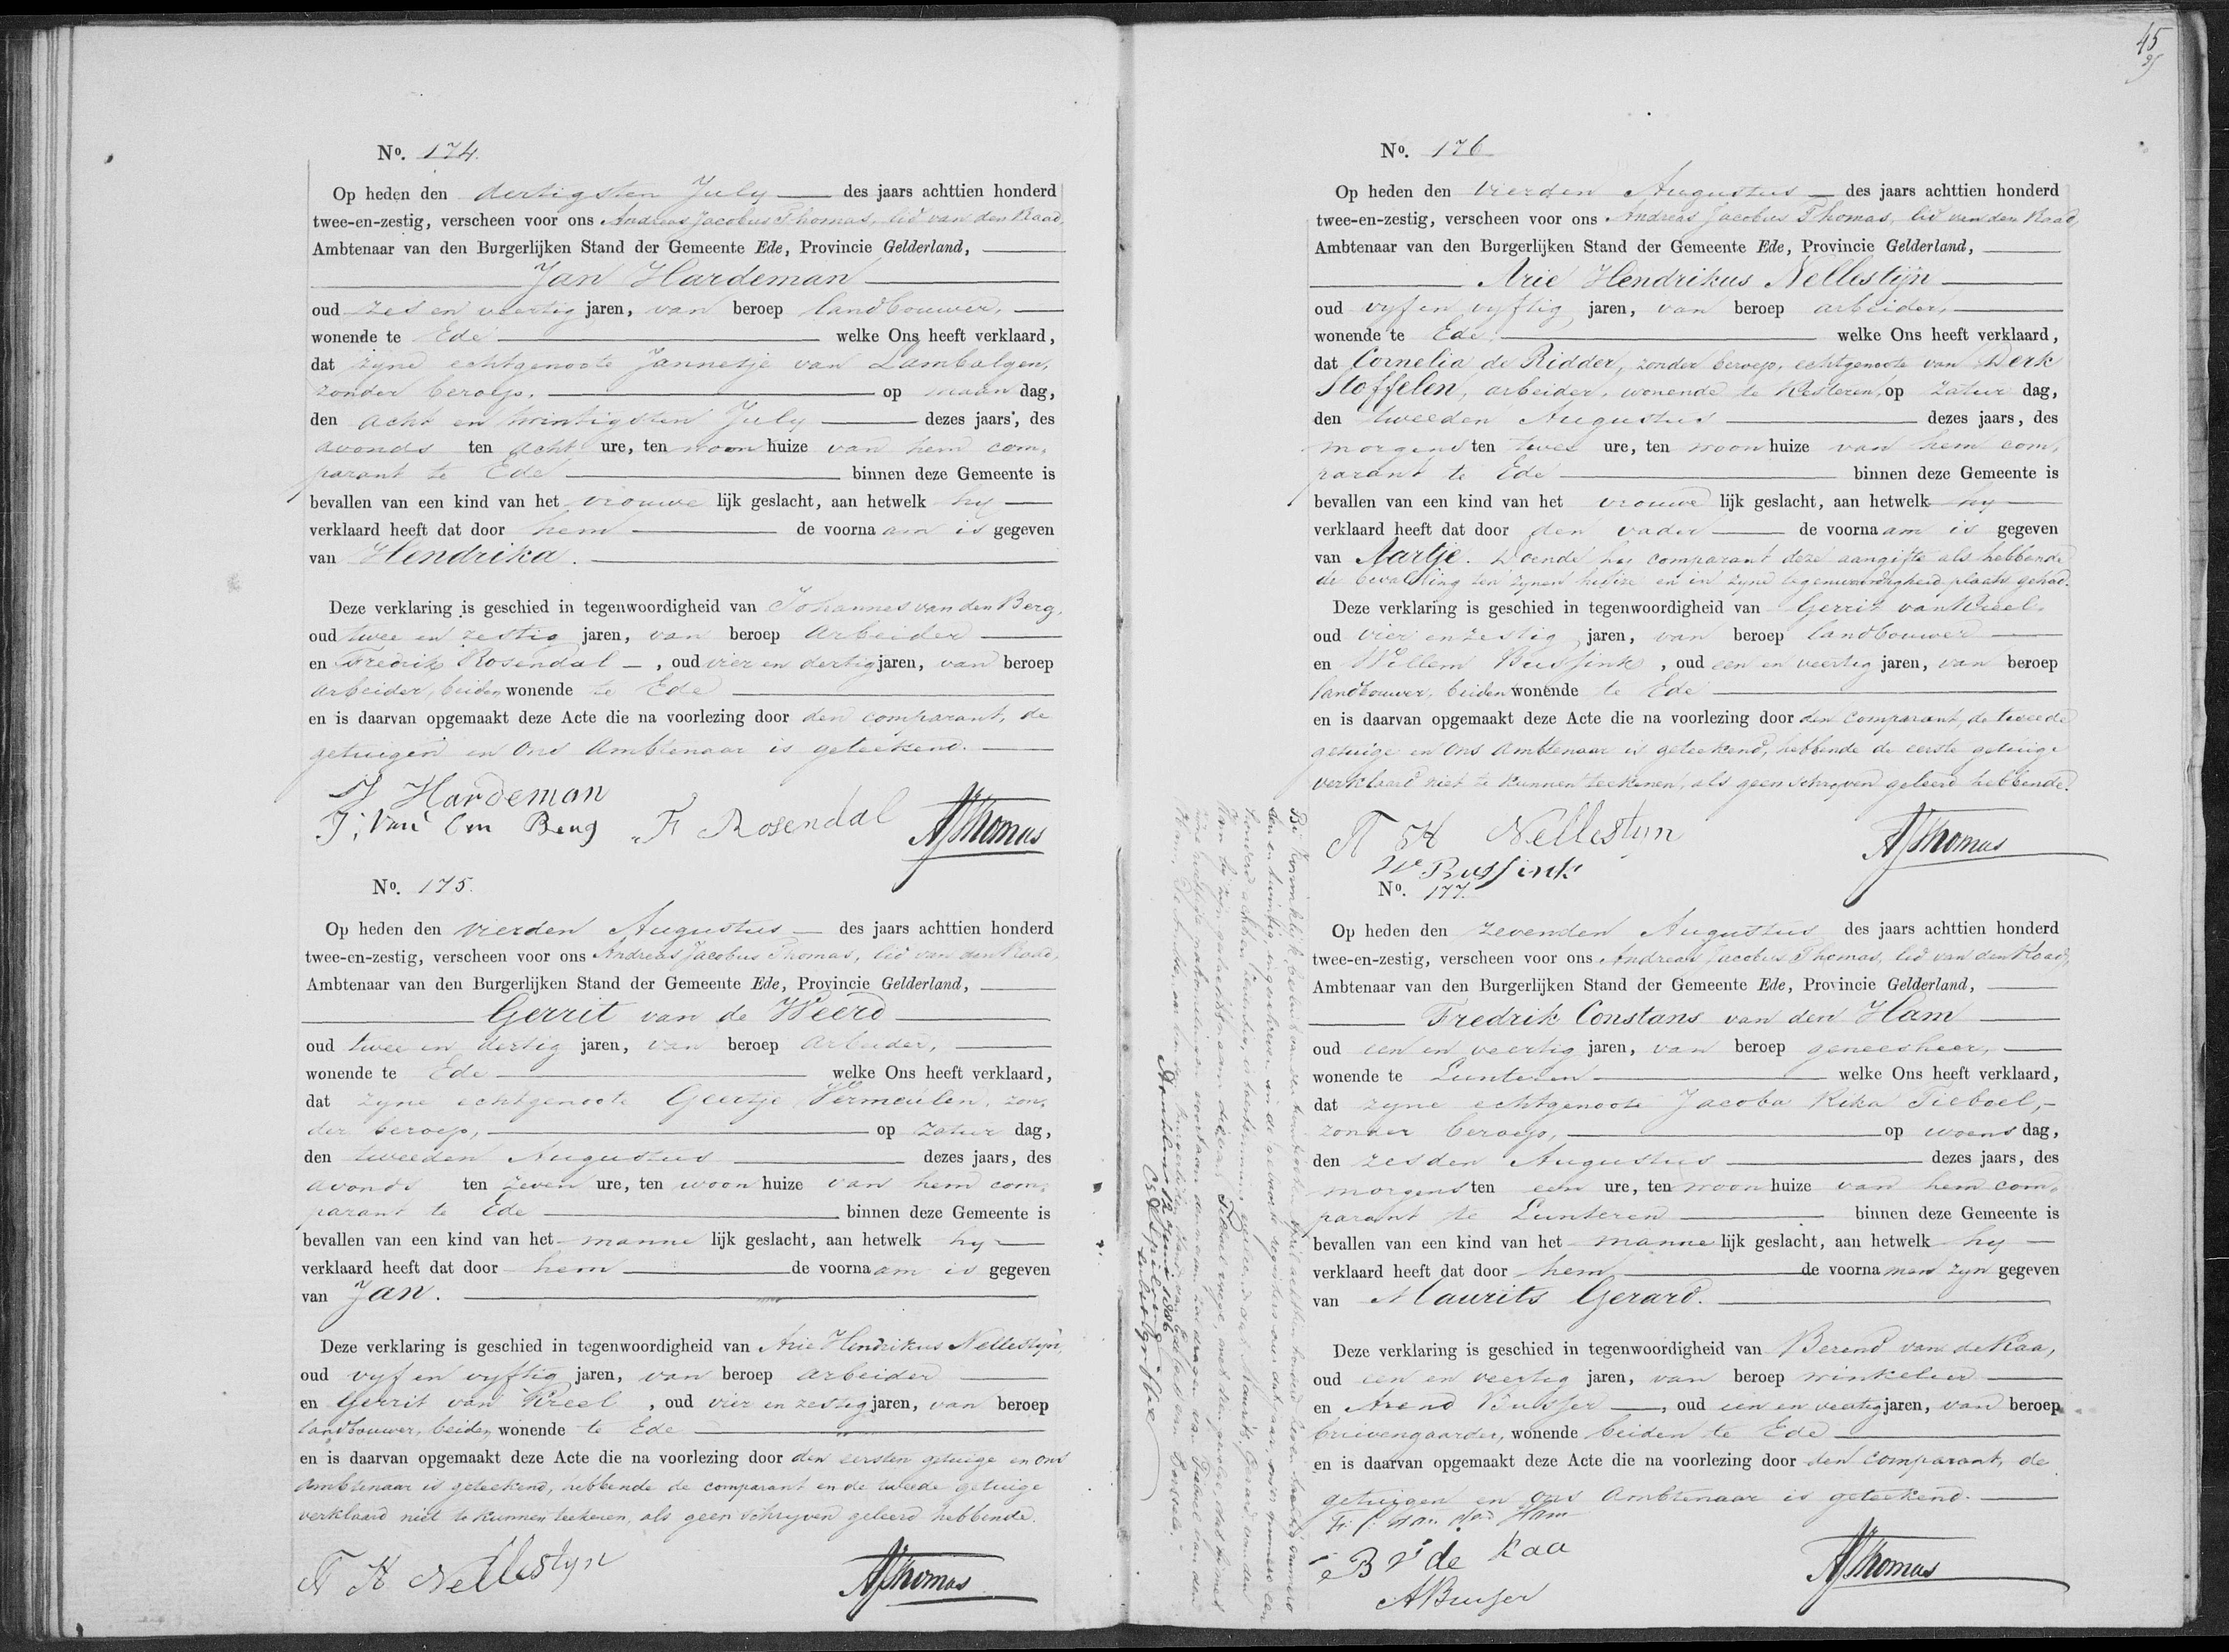 No. 174.
Op heden den dertigsten July des jaars achttien honderd
twee-en-zestig, verscheen voor ons Andreas Jacobus Thomas, lid van den Raad,
Ambtenaar van den Burgerlijken Stand der Gemeente Ede, Provincie Gelderland,
Jan Hardeman
oud zes en veertig jaren, van beroep landbouwer,
wonende te Ede welke Ons heeft verklaard,
dat zyne echtgenoote Jannetje van Lambalgen,
zonder beroep, op maan dag,
den acht en twintigsten July dezes jaars, des
avonds ten acht ure, ten woon huize van hem com,
parant te Ede binnen deze Gemeente is
bevallen van een kind van het vrouwe lijk geslacht, aan hetwelk hy
verklaard heeft dat door hem de voorna am is gegeven
van Hendrika.
Deze verklaring is geschied in tegenwoordigheid van Johannes van den Berg,
oud twee en zestig jaren, van beroep arbeider
en Fredrik Rosendal, oud vier en dertig jaren, van beroep
arbeider, beiden wonende te Ede
en is daarvan opgemaakt deze Acte die na voorlezing door den comparant, de
getuigen en Ons Ambtenaar is geteekend.
J Hardeman
J. Van den Berg F Rosendal AJThomas
No. 175.
Op heden den vierden Augustus des jaars achttien honderd
twee-en-zestig, verscheen voor ons Andreas Jacobus Thomas, lid van den Raad,
Ambtenaar van den Burgerlijken Stand der Gemeente Ede, Provincie Gelderland,
Gerrit van de Weerd
oud twee en dertig jaren, van beroep arbeider,
wonende te Ede welke Ons heeft verklaard,
dat zyne echtgenoote Geertje Vermeulen, zon,
der beroep, op zatur dag,
den tweeden Augustus dezes jaars, des
avonds ten zeven ure, ten woon huize van hem com,
parant te Ede binnen deze Gemeente is
bevallen van een kind van het manne lijk geslacht, aan hetwelk hy
verklaard heeft dat door hem de voorna am is gegeven
van Jan.
Deze verklaring is geschied in tegenwoordigheid van Arie Hendrikus Nellestyn,
oud vyf en vyftig jaren, van beroep arbeider
en Gerrit van Kreel, oud vier en zestig jaren, van beroep
landbouwer, beiden wonende te Ede
en is daarvan opgemaakt deze Acte die na voorlezing door den eersten getuige en Ons
Ambtenaar is geteekend, hebbende de comparant en de tweede getuige
verklaard niet te kunnen teekenen, als geen schryven geleerd hebbende.
A H Nellestyn AJThomas
45
No. 176
Op heden den vierden Augustus des jaars achttien honderd
twee-en-zestig, verscheen voor ons Andreas Jacobus Thomas, lid van den Raad,
Ambtenaar van den Burgerlijken Stand der Gemeente Ede, Provincie Gelderland,
Arie Hendrikus Nellestijn
oud vyf en vyftig jaren, van beroep arbeider,
wonende te Ede welke Ons heeft verklaard,
dat Cornelia de Ridder, zonder beroep, echtgenoote van Derk
Stoffelen, arbeider, wonende te Kesteren, op zatur dag,
den tweeden Augustus dezes jaars, des
morgens ten twee ure, ten woon huize van hem com,
parant te Ede binnen deze Gemeente is
bevallen van een kind van het vrouwe lijk geslacht, aan hetwelk hy
verklaard heeft dat door den vader de voorna am is gegeven
van Aartje. Doende hy comparant deze aangifte als hebbende
de bevalling ten zynen huize en in zyne tegenwoordigheid plaats gehad.
Deze verklaring is geschied in tegenwoordigheid van Gerrit van Kreel
oud vier en zestig jaren, van beroep landbouwer
en Willem Bussink, oud een en veertig jaren, van beroep
landbouwer, beiden wonende te Ede
en is daarvan opgemaakt deze Acte die na voorlezing door den comparant, de tweede
getuige en Ons Ambtenaar is geteekend, hebbende de eerste getuige
verklaard niet te kunnen teekenen, als geen schryven geleerd hebbende.
A H Nellestyn AJThomas
W Bussink
No. 177.
Op heden den zevenden Augustus des jaars achttien honderd
twee-en-zestig, verscheen voor ons Andreas Jacobus Thomas, lid van den Raad,
Ambtenaar van den Burgerlijken Stand der Gemeente Ede, Provincie Gelderland,
Fredrik Constans van den Ham
oud een en veertig jaren, van beroep geneesheer,
wonende te Lunteren welke Ons heeft verklaard,
dat zyne echtgenoote Jacoba Kika Tieboel,
zonder beroep, op woens dag,
den zesden Augustus dezes jaars, des
morgens ten een ure, ten woon huize van hem com,
parant te Lunteren binnen deze Gemeente is
bevallen van een kind van het manne lijk geslacht, aan hetwelk hy
verklaard heeft dat door hem de voorna men zyn gegeven
van Maurits Gerard.
Deze verklaring is geschied in tegenwoordigheid van Berend van de Kaa,
oud een en veertig jaren, van beroep winkelier
en Arend Buser, oud een en veertig jaren, van beroep
brievengaarder, wonende beiden te Ede
en is daarvan opgemaakt deze Acte die na voorlezing door den comparant, de
getuigen en Ons Ambtenaar is geteekend.
F. C. van den Ham
B v de Kaa AJThomas
ABuser
Bij Koninklijk besluit van den
Arnhem 12 Juni 1886